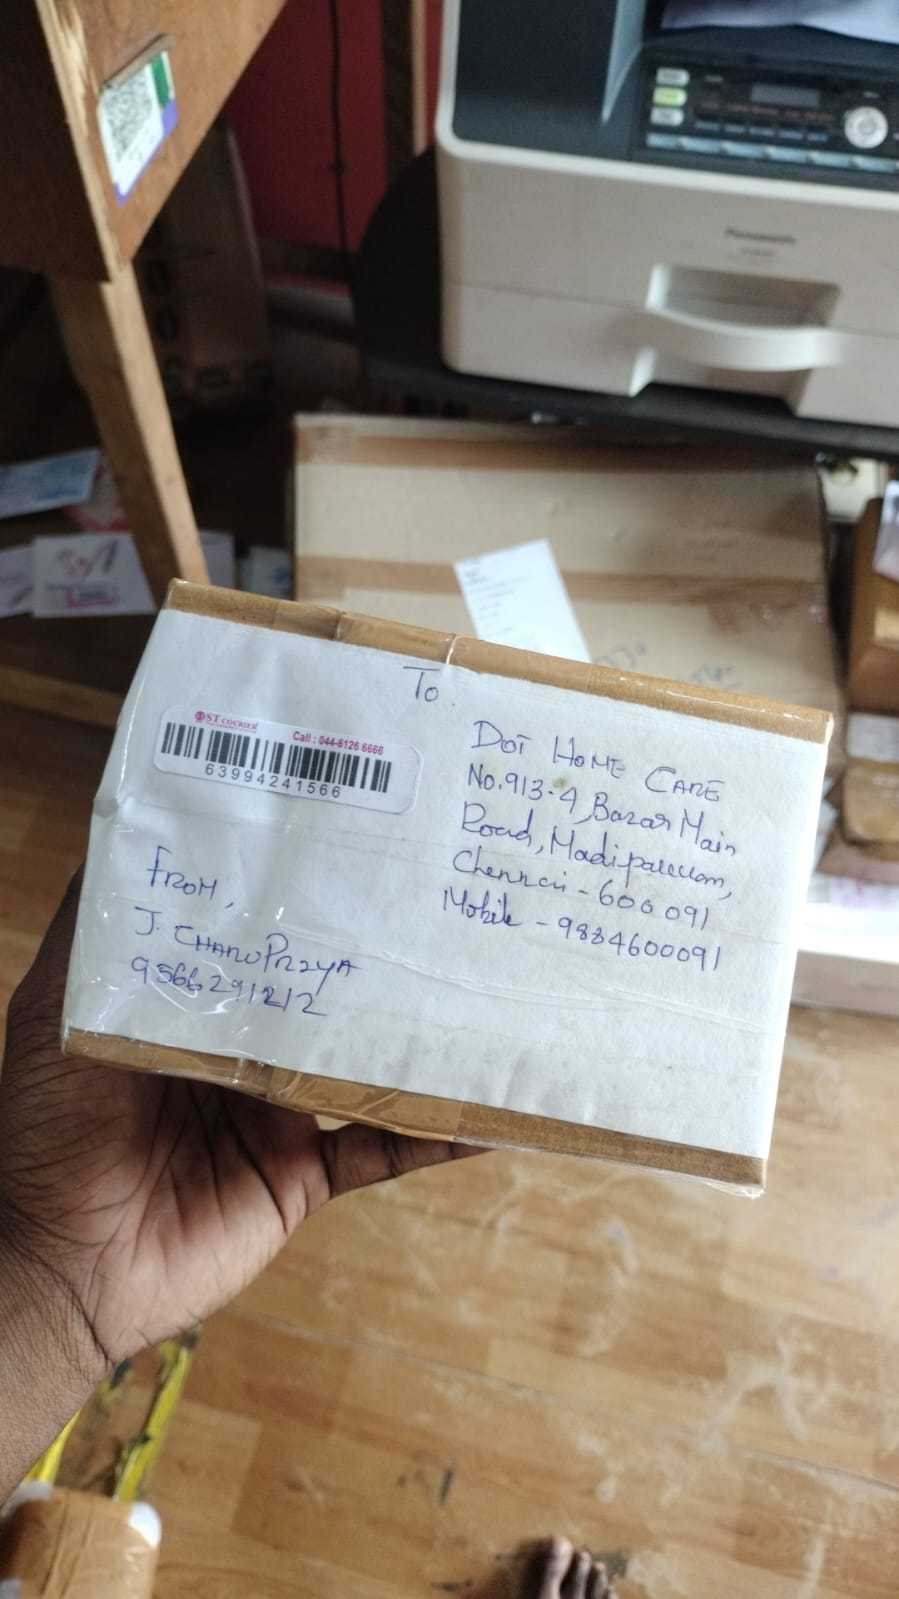 Panasonic
To.
ST COURIER
Call : 044-6126 6666
63994241566
DOT HOME CARE
No.913-4, Bazar Main
Road, Madipakkam,
Chennai - 600 091
Mobile - 9884600091
FROM,
J. CHARUPRIYA
9566291212